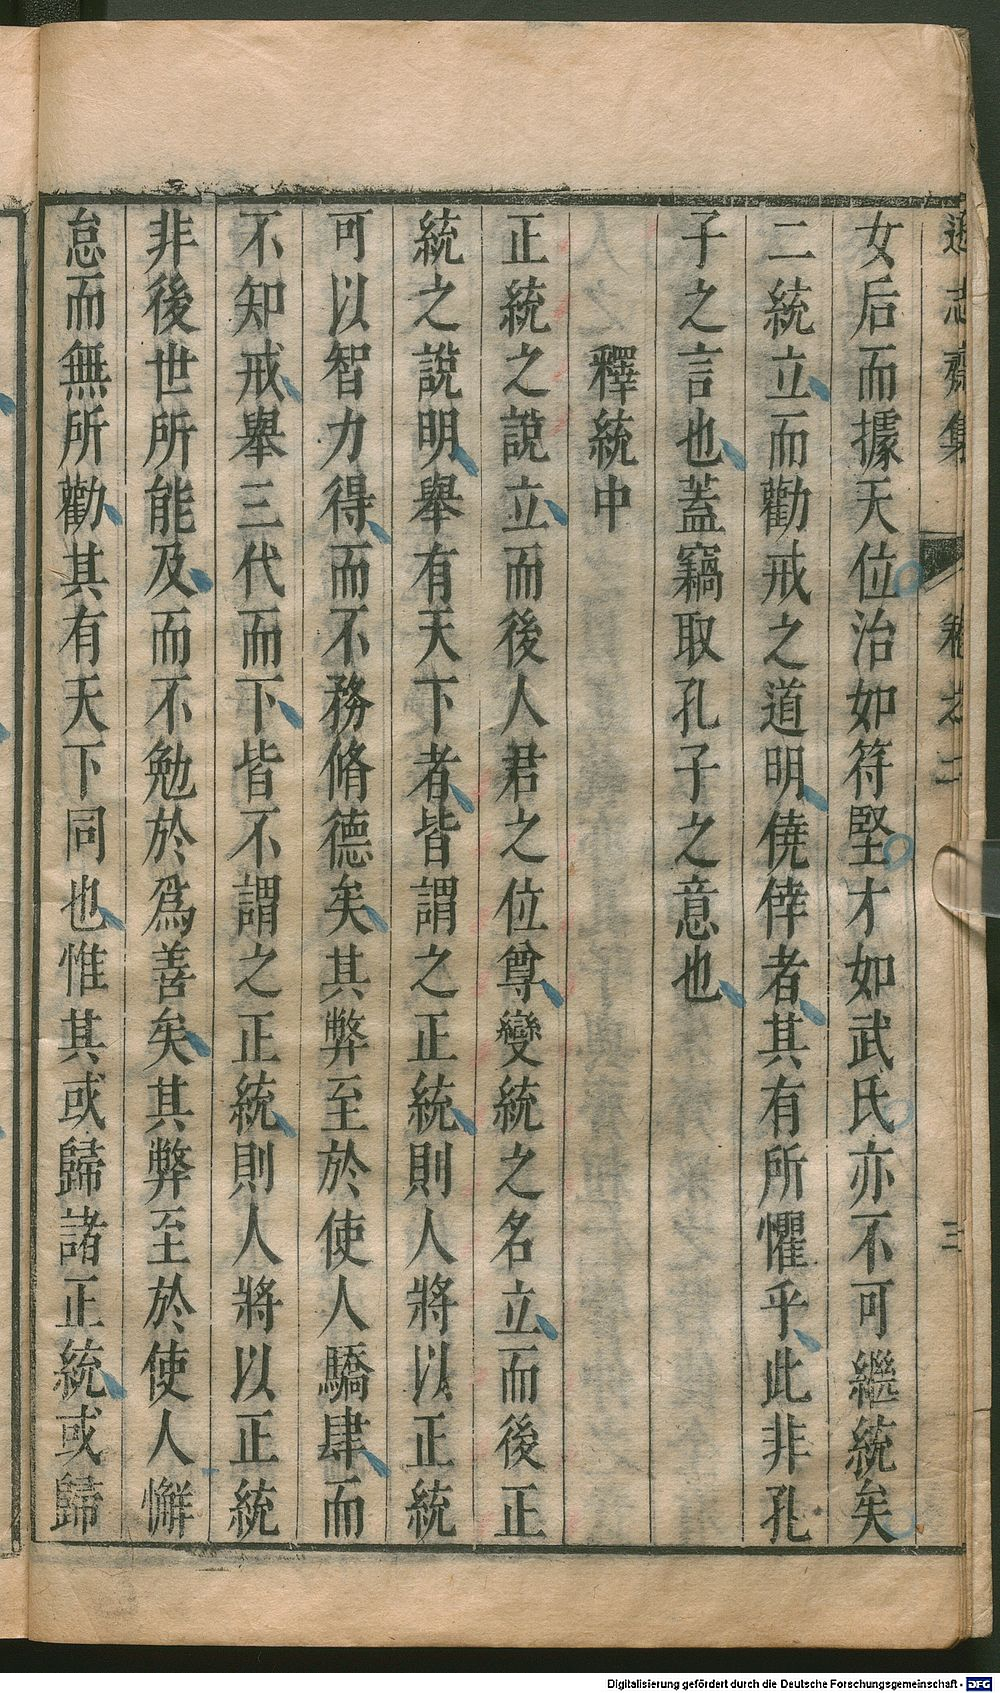 遜志齋集 卷之二 三
女后而據天位治如符堅才如武氏亦不可繼統矣
二統立而勸戒之道明僥倖者其有所懼乎此非孔
子之言也蓋竊取孔子之意也
釋統中
正統之說立而後人君之位尊變統之名立而後正
統之說明舉有天下者皆謂之正統則人將以正統
可以智力得而不務脩德矣其弊至於使人驕肆而
不知戒舉三代而下皆不謂之正統則人將以正統
非後世所能及而不勉於爲善矣其弊至於使人懈
怠而無所勸其有天下同也惟其或歸諸正統或歸
Digitalisierung gefördert durch die Deutsche Forschungsgemeinschaft - DFG